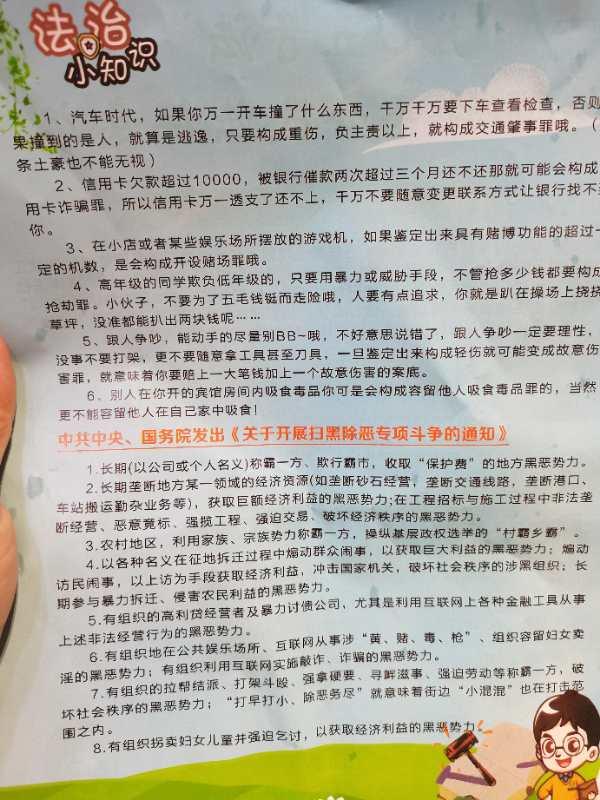 法治
小知识
1、汽车时代，如果你万一开车撞了什么东西，千万千万要下车查看检查，否则
果撞到的是人，就算是逃逸，只要构成重伤，负主责以上，就构成交通肇事罪哦。（
条土豪也不能无视）
2、信用卡欠款超过10000，被银行催款两次超过三个月还不还那就可能会构成
用卡诈骗罪，所以信用卡万一透支了还不上，千万不要随意变更联系方式让银行找不
你。
3、在小店或者某些娱乐场所摆放的游戏机，如果鉴定出来具有赌博功能的超过一
定的机数，是会构成开设赌场罪哦。
4、高年级的同学欺负低年级的，只要用暴力或威胁手段，不管抢多少钱都要构成
抢劫罪。小伙子，不要为了五毛钱铤而走险哦，人要有点追求，你就是趴在操场上挠挠
草坪，没准都能扒出两块钱呢……
5、跟人争吵，能动手的尽量别BB~哦，不好意思说错了，跟人争吵一定要理性，
没事不要打架，更不要随意拿工具甚至刀具，一旦鉴定出来构成轻伤就可能变成故意伤
害罪，就意味着你要赔上一大笔钱加上一个故意伤害的案底。
6、别人在你开的宾馆房间内吸食毒品你可是会构成容留他人吸食毒品罪的，当然
更不能容留他人在自己家中吸食！
中共中央、国务院发出《关于开展扫黑除恶专项斗争的通知》
1.长期(以公司或个人名义)称霸一方、欺行霸市，收取“保护费”的地方黑恶势力。
2.长期垄断地方某一领域的经济资源(如垄断砂石经营，垄断交通线路，垄断港口、
车站搬运勤杂业务等)，获取巨额经济利益的黑恶势力;在工程招标与施工过程中非法垄
断经营、恶意竟标、强揽工程、强迫交易、破坏经济秩序的黑恶势力。
3.农村地区，利用家族、宗族势力称霸一方，操纵基层政权选举的“村霸乡霸”。
4.以各种名义在征地拆迁过程中煽动群众闹事，以获取巨大利益的黑恶势力；煽动
访民闹事，以上访为手段获取经济利益，冲击国家机关，破坏社会秩序的涉黑组织；长
期参与暴力拆迁、侵害农民利益的黑恶势力。
5.有组织的高利贷经营者及暴力讨债公司，尤其是利用互联网上各种金融工具从事
上述非法经营行为的黑恶势力。
6.有组织地在公共娱乐场所、互联网从事涉“黄、赌、毒、枪”、组织容留妇女卖
淫的黑恶势力；有组织利用互联网实施敲诈、诈骗的黑恶势力。
7.有组织的拉帮结派、打架斗殴、强拿硬要、寻衅滋事、强迫劳动等称霸一方，破
坏社会秩序的黑恶势力；“打早打小、除恶务尽”就意味着街边“小混混”也在打击范
围之内。
8.有组织拐卖妇女儿童并强迫乞讨，以获取经济利益的黑恶势力。